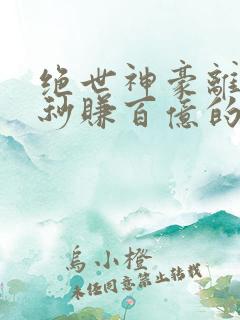 绝世神豪離
秒賺百億的
烏小橙
未經同意禁止轉載